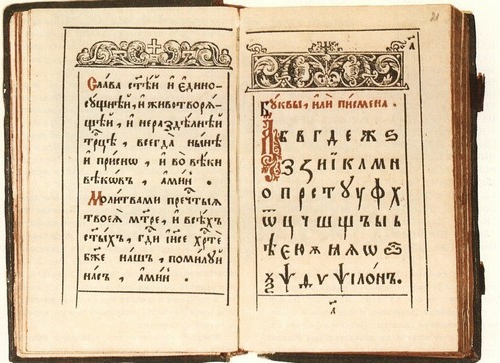 Сла́ва ст҃ѣ́й и҆ є҆дино-
сꙋ́щнѣй, и҆ животворѧ́-
щѣй, и҆ нераздѣ́лнѣй
трⷪ҇цѣ, всегда̀ ны́нѣ
и҆ при́снѡ, и҆ во вѣ́ки
вѣкѡ́въ, а҆ми́нь .
Моли́твами пречⷭ҇тыѧ
твоеѧ̀ мт҃ре, и҆ всѣ́хъ
ст҃ы́хъ, гдⷭ҇и і҆и҃се хрⷭ҇тѐ
бж҃е на́шъ, поми́лꙋй
на́съ, а҆ми́нь .
21
Бꙋ́квы, и҆лѝ писмена̀ .
А Б В Г Д Е Ж Ѕ
З И І К Л М Н
О П Р С Т Ѹ Ꙋ Ф Х
Ѿ Ц Ч Ш Щ Ъ Ы Ь
Ѣ Є Ю Ѫ Ꙗ Ѧ Ѡ
Ѯ Ѱ Ѳ Ѵ Ѱїло́нъ.